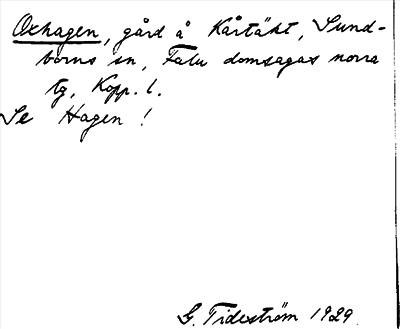 Oxhagen, gård å Kårtäkt, Sund-
borns sn, Falu domsagas norra
tg, Kopp. l.
Se Hagen !
G. Tideström 1929